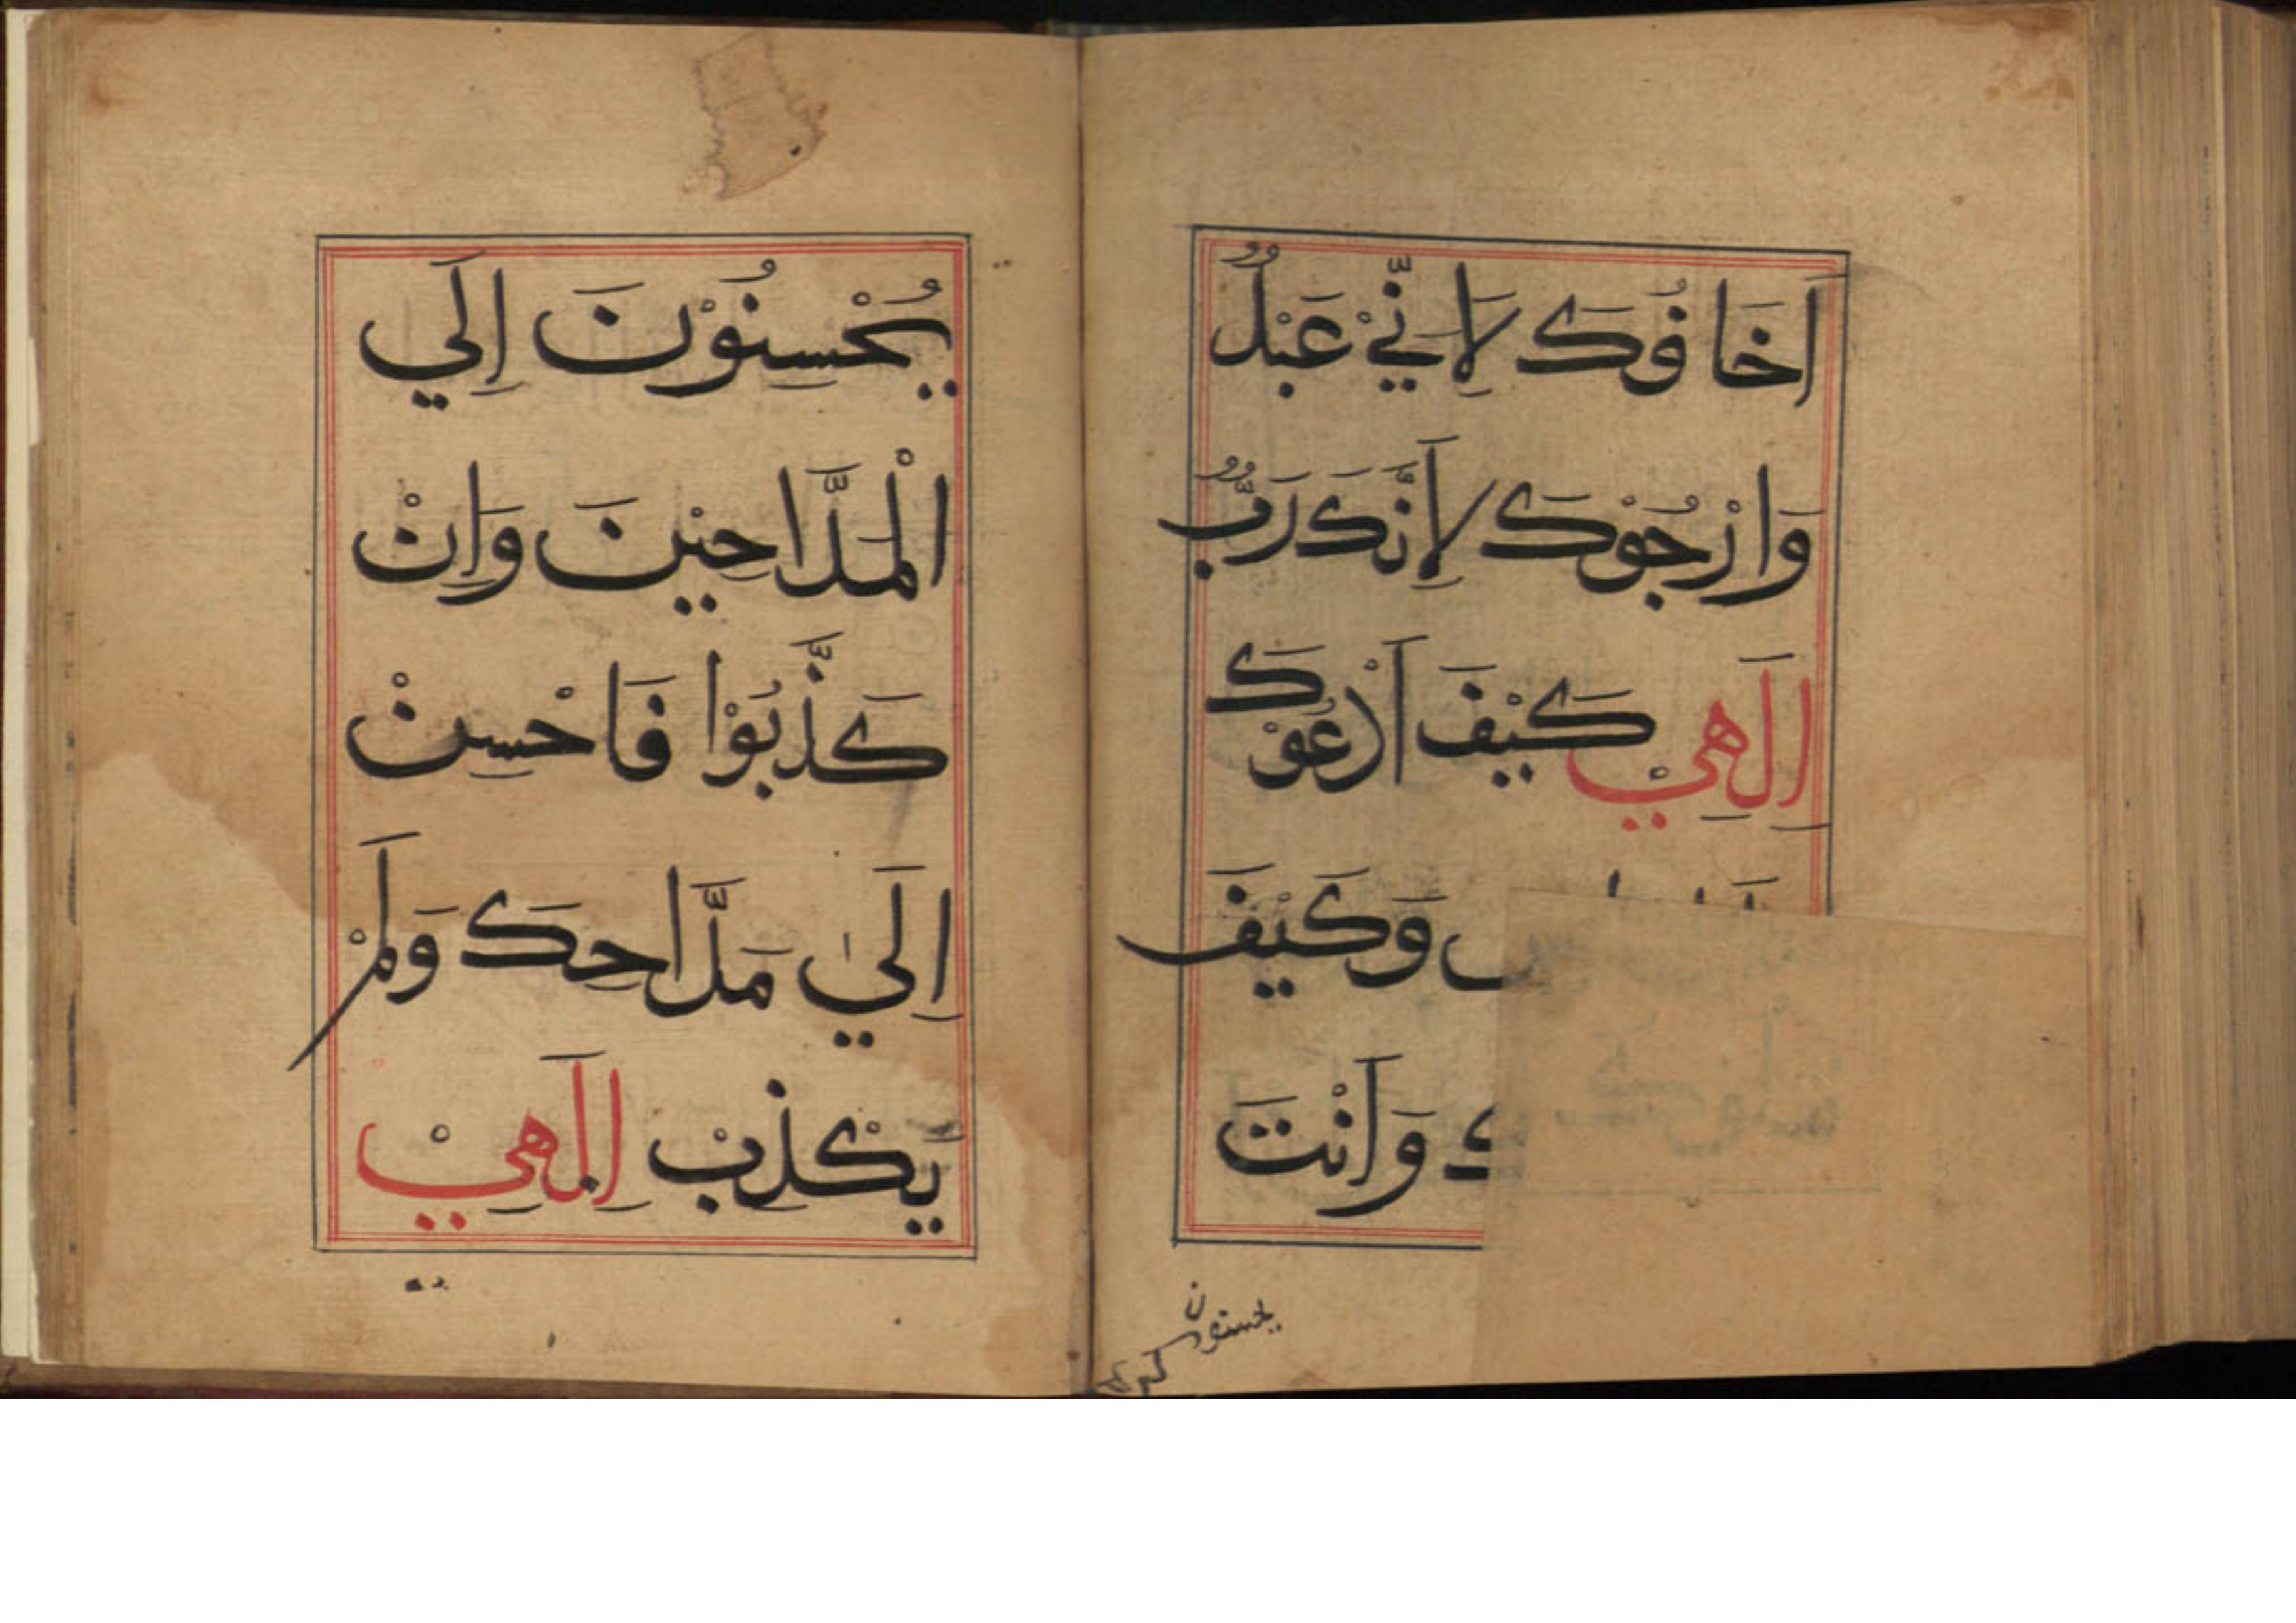 اَخَا فُوكَ لِاَنِّيْ عَبْدٌ
وَارْجُوْكَ لِاَنَّكَ رَبٌّ
اِلَهِيْ كَيْفَ اَدْعُوْكَ
وَكَيْفَ
وَاَنْتَ
يحسنون
يُحْسِنُوْنَ اِلَي
الْمَدَّاحِيْنَ وَاِنْ
كَذَّبُوْا فَاحْسِنْ
اِلَيٰ مَدَّاحِكَ وَلَمْ
يَكْذِبْ اِلَهِيْ